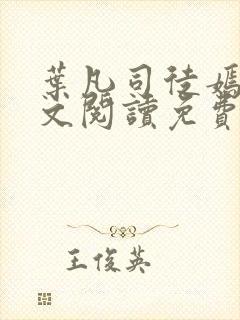 葉凡司徒嫣
文閱讀免費
王俊英